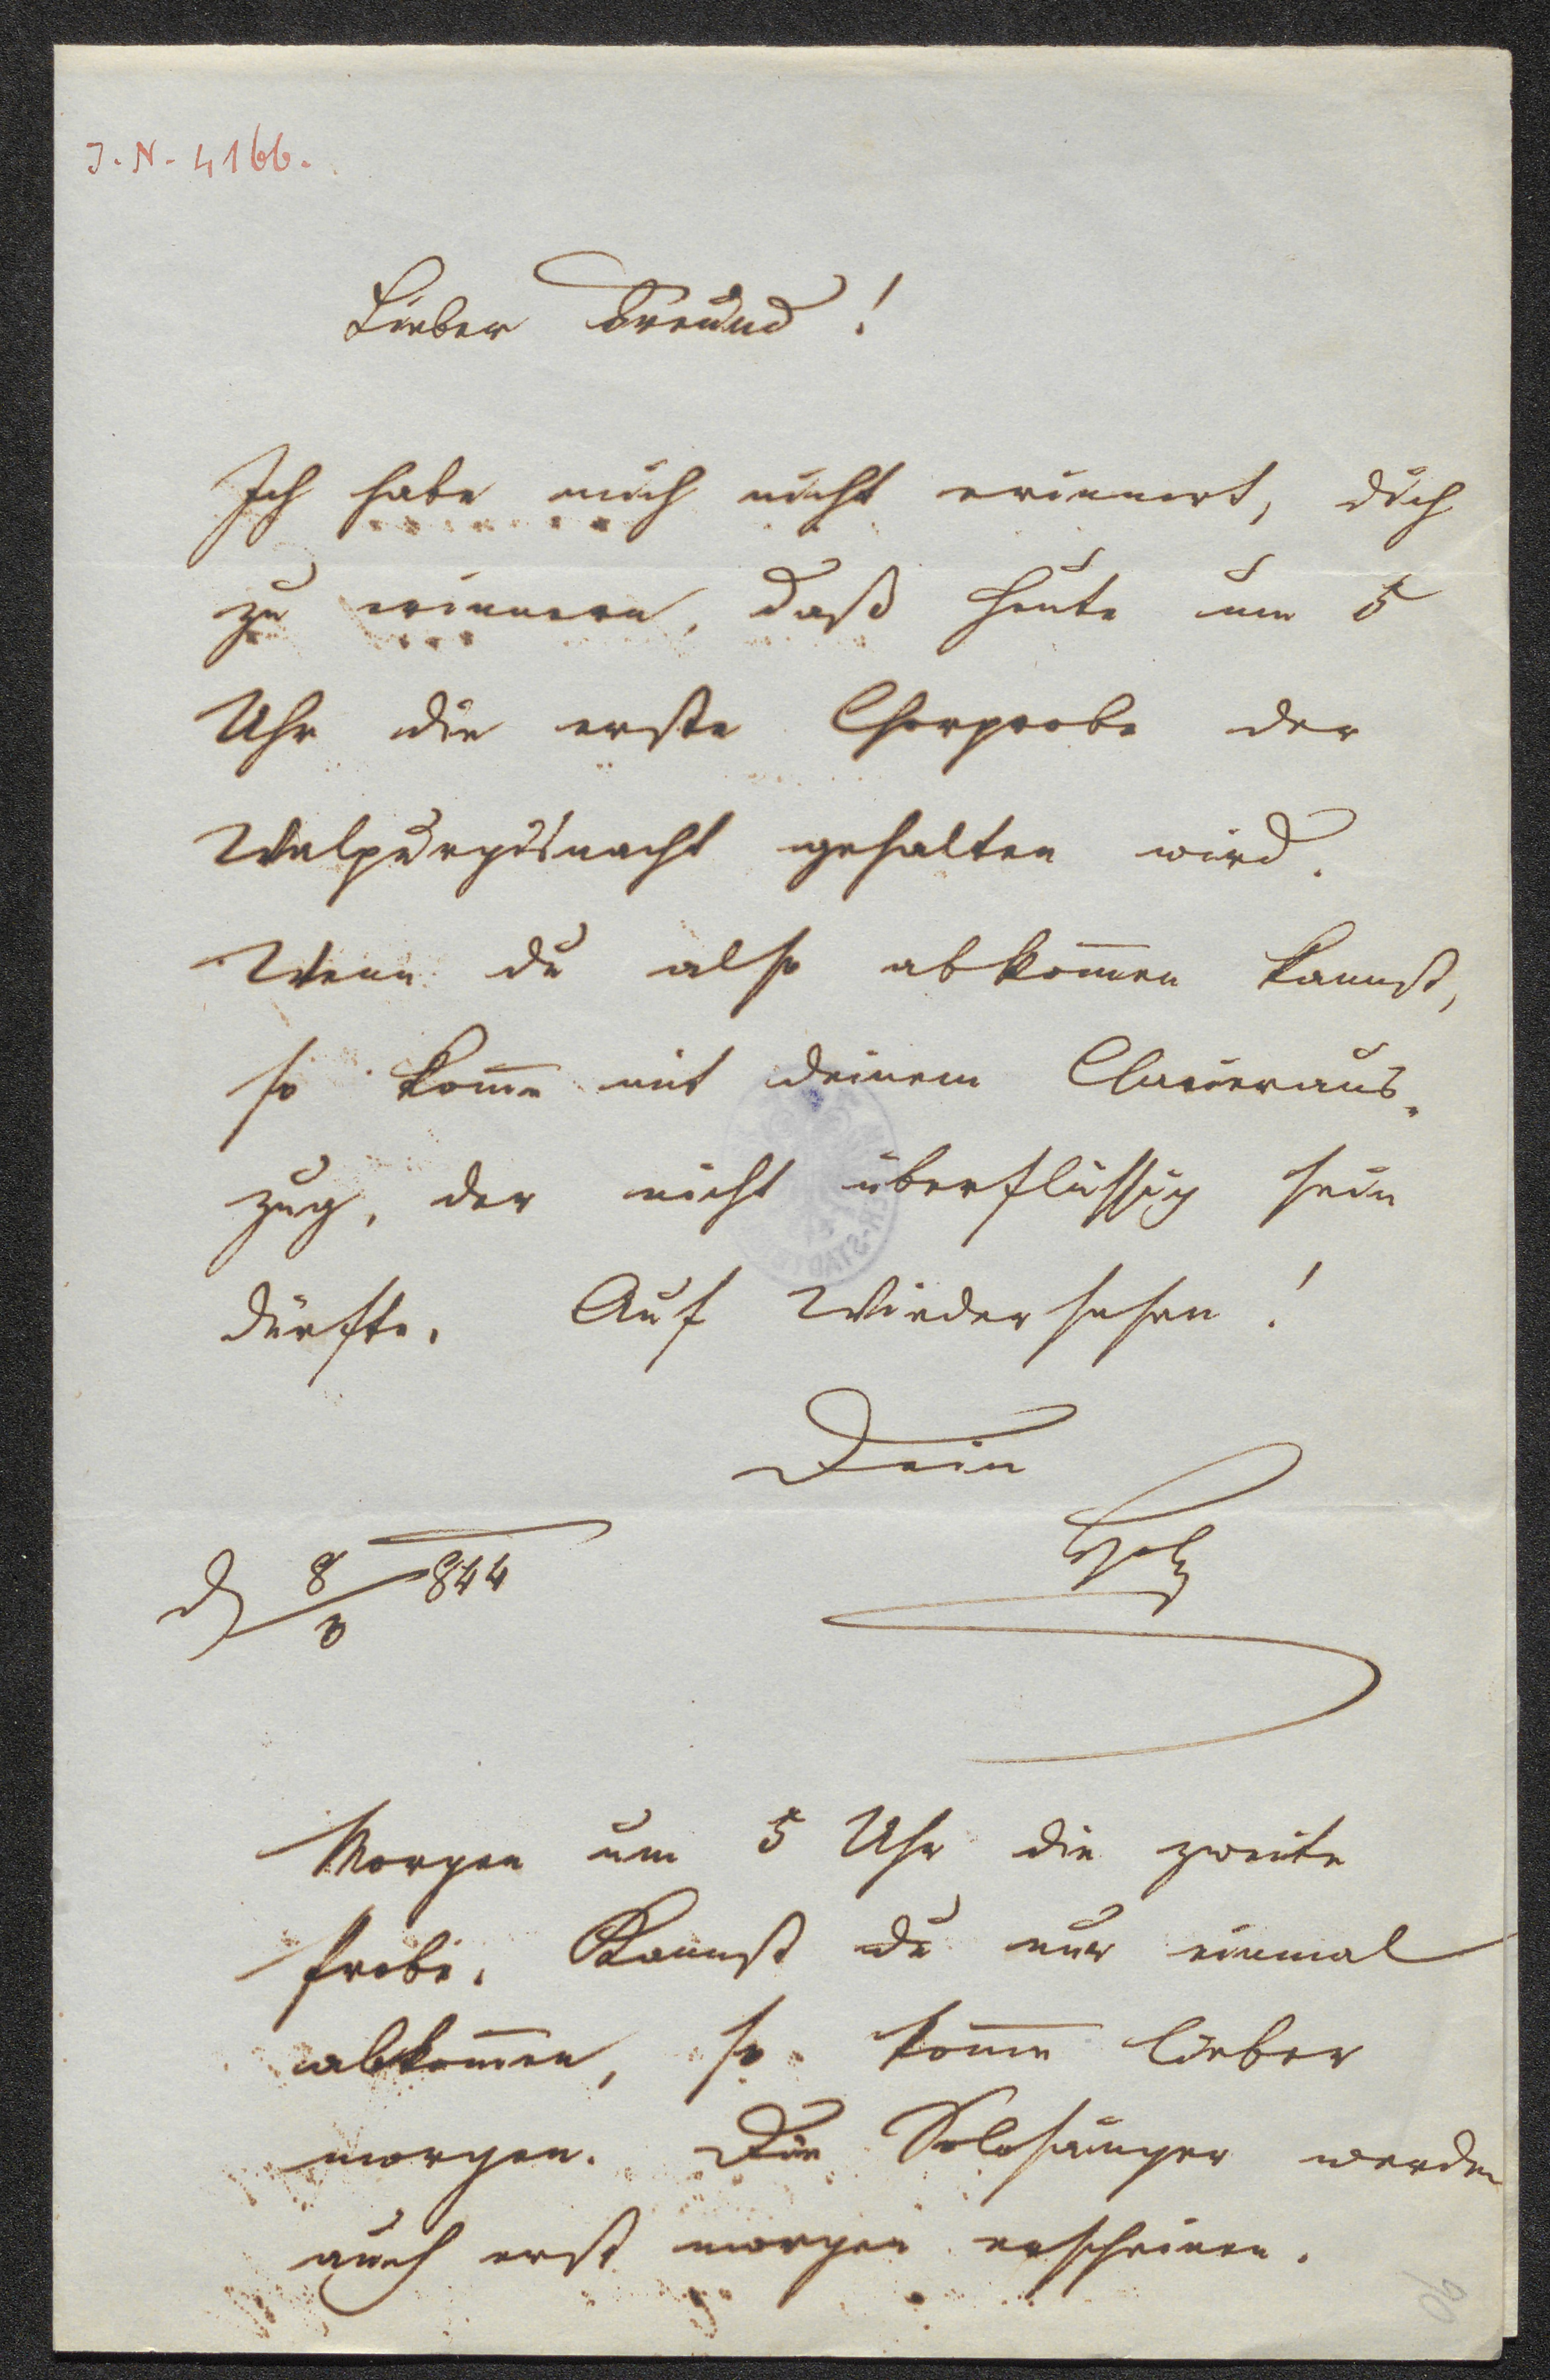 J. N. 4166.
Lieber Freund!
Ich habe mich nicht erinnert, dich
zu erinnern, daß heute um 5
Uhr die erste Chorprobe der
Walpurgisnacht gehalten wird.
Wenn du also abkom̄en kannst,
so kom̄e mit deinem Clavieraus-
zug, der nicht überflüssig sein
dürfte. Auf Wiedersehen!
Dein
Holz
d 8/3 844
Morgen um 5 Uhr die zweite
Probe. Kannst du nur einmal
abkom̄en, so kom̄e lieber
morgen. Die Solosänger werden
auch erst morgen erscheinen.